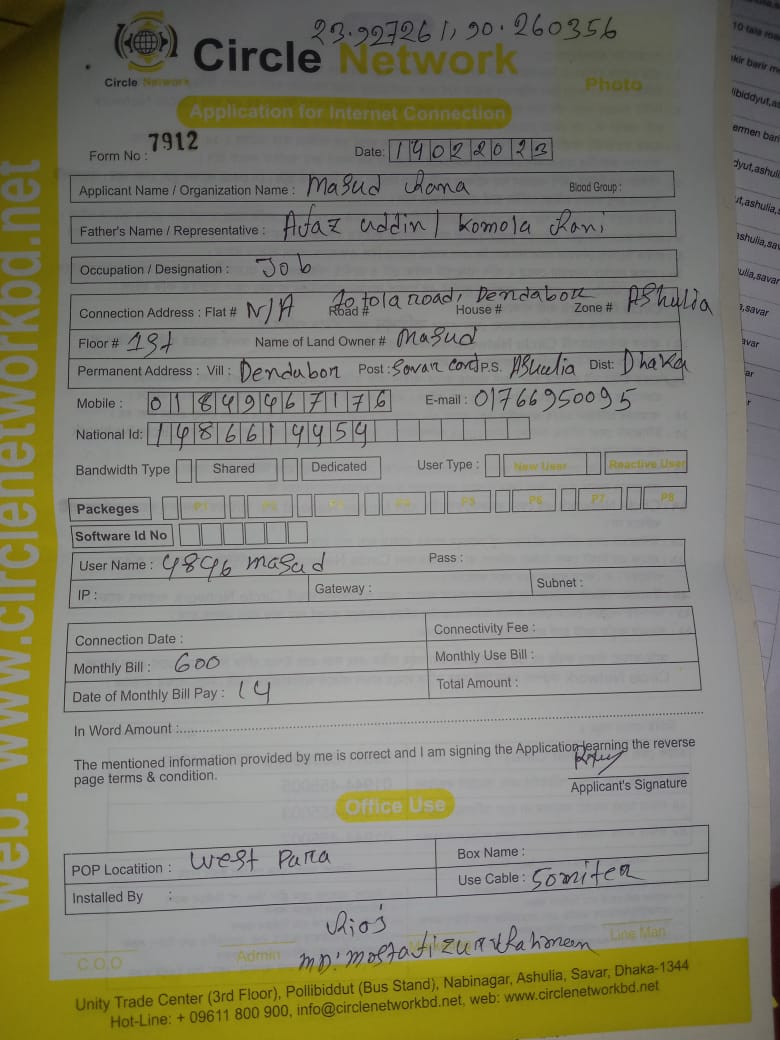 23.927261, 90.260356
Circle Network
Circle Network
Photo
Application for Internet Connection
Form No : 7912
Date: 14022023
Applicant Name / Organization Name : Masud Rana Blood Group :
Father's Name / Representative : Afaz uddin / Komola Rani
Occupation / Designation : Job
Connection Address : Flat # N/A Road # 10 tola road, Dendabor House # Zone # AShulia
Floor # 1st Name of Land Owner # Masud
Permanent Address : Vill : Dendabor Post : Savar Cant P.S. AShulia Dist: Dhaka
Mobile : 01849467176 E-mail : 01766950095
National Id: 1486614454
Bandwidth Type Shared Dedicated User Type : New User Reactive User
Packeges P1 P2 P3 P4 P5 P6 P7 P8
Software Id No
User Name : 4896 masud Pass :
IP : Gateway : Subnet :
Connection Date : Connectivity Fee :
Monthly Bill : 600 Monthly Use Bill :
Date of Monthly Bill Pay : 14 Total Amount :
In Word Amount :
The mentioned information provided by me is correct and I am signing the Application learning the reverse
page terms & condition.
Applicant's Signature
Office Use
POP Locatition : West Para Box Name :
Installed By : Use Cable : 50 miter
MD: Mostafizur Rahman
C.O.O Admin Line Man
Unity Trade Center (3rd Floor), Pollibiddut (Bus Stand), Nabinagar, Ashulia, Savar, Dhaka-1344
Hot-Line: + 09611 800 900, info@circlenetworkbd.net, web: www.circlenetworkbd.net
web: www.circlenetworkbd.net